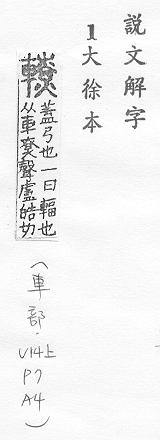 説文解字
1大徐本
轑
蓋弓也一曰輻也
从車尞聲盧皓切
(車部.
V14上
P7
A4)